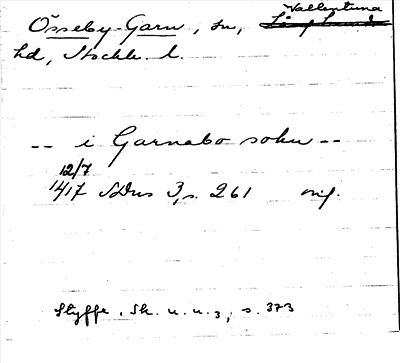 Össeby-Garn, sn, Vallentuna
hd, Stockh. l.
-- i Garnabo sokn --
12/7
1417 SDns 3, s. 261 orig.
Styffe, Sk. u. u. 3, s. 373